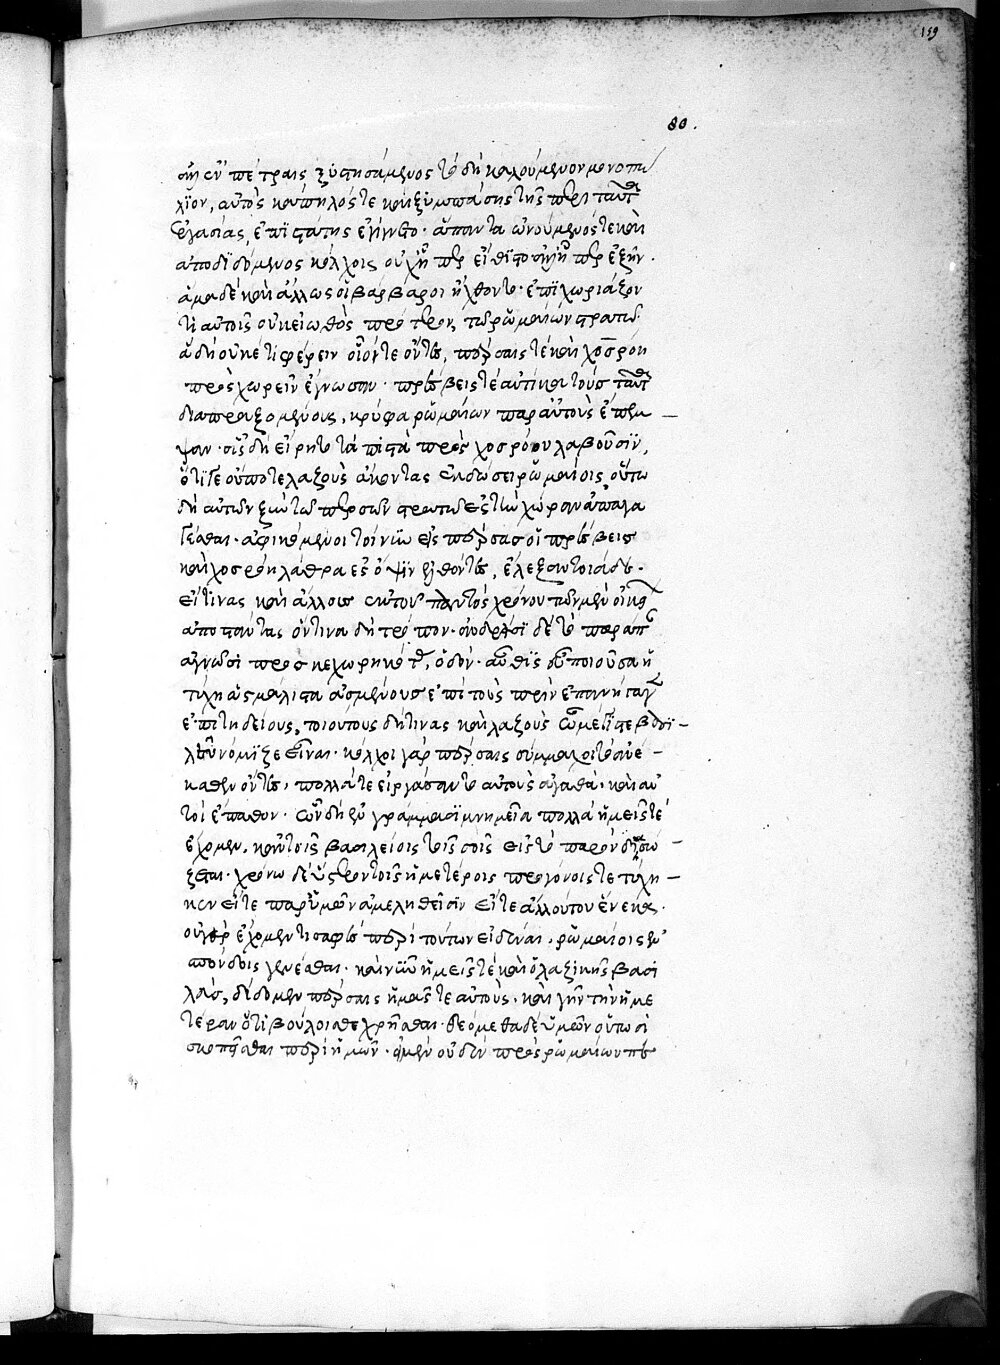 159
80.
ὃς ἐν πέτραις ξυστησάμενος τὸ δὴ καλούμενον μονοπώ
λιον, αὐτὸς κάπηλός τε καὶ ξυμπάσης τῆς περὶ ταῦτα
ἐργασίας, ἐπιστάτης ἐγίνετο· ἅπαντα ὠνούμενός τε καὶ
ἀποδιδόμενος κόλχοις οὐχ ᾗπερ εἴθιστο ἀλλ' ᾗπερ ἐξῆν.
ἅμα δὲ καὶ ἄλλως οἱ βάρβαροι ἤχθοντο· ἐπιχωριάζον
τι αὐτοῖς οὐκ εἰωθὸς πρότερον, τῷ ῥωμαίων στρατῷ
ἃ δὴ οὐκέτι φέρειν οἷοί τε ὄντες, πέρσαις τὲ καὶ χοσρόῃ
προσχωρεῖν ἔγνωσαν· πρέσβεις τέ αὐτίκα τοὺς ταῦτα
διαπραξομένους, κρύφα ῥωμαίων παρ' αὐτοὺς ἔπεμ
ψαν· οἷς δὴ εἴρητο τὰ πιστὰ πρὸς χοσρόου λαβοῦσιν,
ὅτι γε οὔποτε λαζοὺς ἄκοντας ἐκδώσει ῥωμαίοις, οὕτω
δὴ αὐτὸν ξὺν τῷ περσῶν στρατῷ ἐς τὴν χώραν ἐπαγα
γέσθαι. ἀφικόμενοι τοίνυν ἐς πέρσας οἱ πρέσβεις
καὶ χοσρόῃ λάθρα ἐς ὄψιν ἐλθόντες, ἔλεξαν τοιάδε.
εἴ τινας καὶ ἄλλους ἐκ τοῦ παντὸς χρόνου τῶν μὲν οἰκείων
ἀποστάντας ὅντινα δὴ τρόπον· ἀνδράσι δὲ τὸ παράπαν
ἀγνῶσι προσκεχωρηκότας, οὐ δέον· αὖθις εὖ ποιοῦσα ἡ
τύχη ὡς μάλιστα ἀσμένους ἐπὶ τοὺς πρὶν ἐπανήγαγεν
ἐπιτηδείους, τοιούτους δή τινας καὶ λαζοὺς ὦ μέγιστε βασι
λεῦ νόμιζε εἶναι. κόλχοι γὰρ πέρσαις σύμμαχοι τὸ ἀνέ
καθεν ὄντες, πολλά τε εἰργάσαντο αὐτοὺς ἀγαθὰ· καὶ αὐ
τοὶ ἔπαθον· ὧν δὴ ἐν γράμμασι μνημεῖα πολλὰ ἡμεῖς τέ
ἔχομεν, κἀν τοῖς βασιλείοις τοῖς σοῖς εἰς τὸ παρὸν διασώ
ζεται. χρόνω δὲ ὕστερον τοῖς ἡμετέροις προγόνοις τετύχη
κεν εἴτε παρ' ὑμῶν ἀμεληθεῖσιν εἴτε ἄλλου του ἕνεκα.
οὐ γὰρ ἔχομεν τι σαφὲς περὶ τούτων εἰδέναι, ῥωμαίοις ἐν
σπόνδοις γενέσθαι. καὶ νῦν ἡμεῖς τὲ καὶ ὁ λαζικῆς βασι
λεὺς, δίδομεν πέρσαις ἡμᾶς τε αὐτοὺς, καὶ γῆν τὴν ἡμε
τέραν ὅτι βούλοισθε χρῆσθαι. δεόμεθα δὲ ὑμῶν οὕτωσὶ
σκοπεῖσθαι περὶ ἡμῶν· εἰ μὲν οὐδὲν πρὸς ῥωμαίων πε